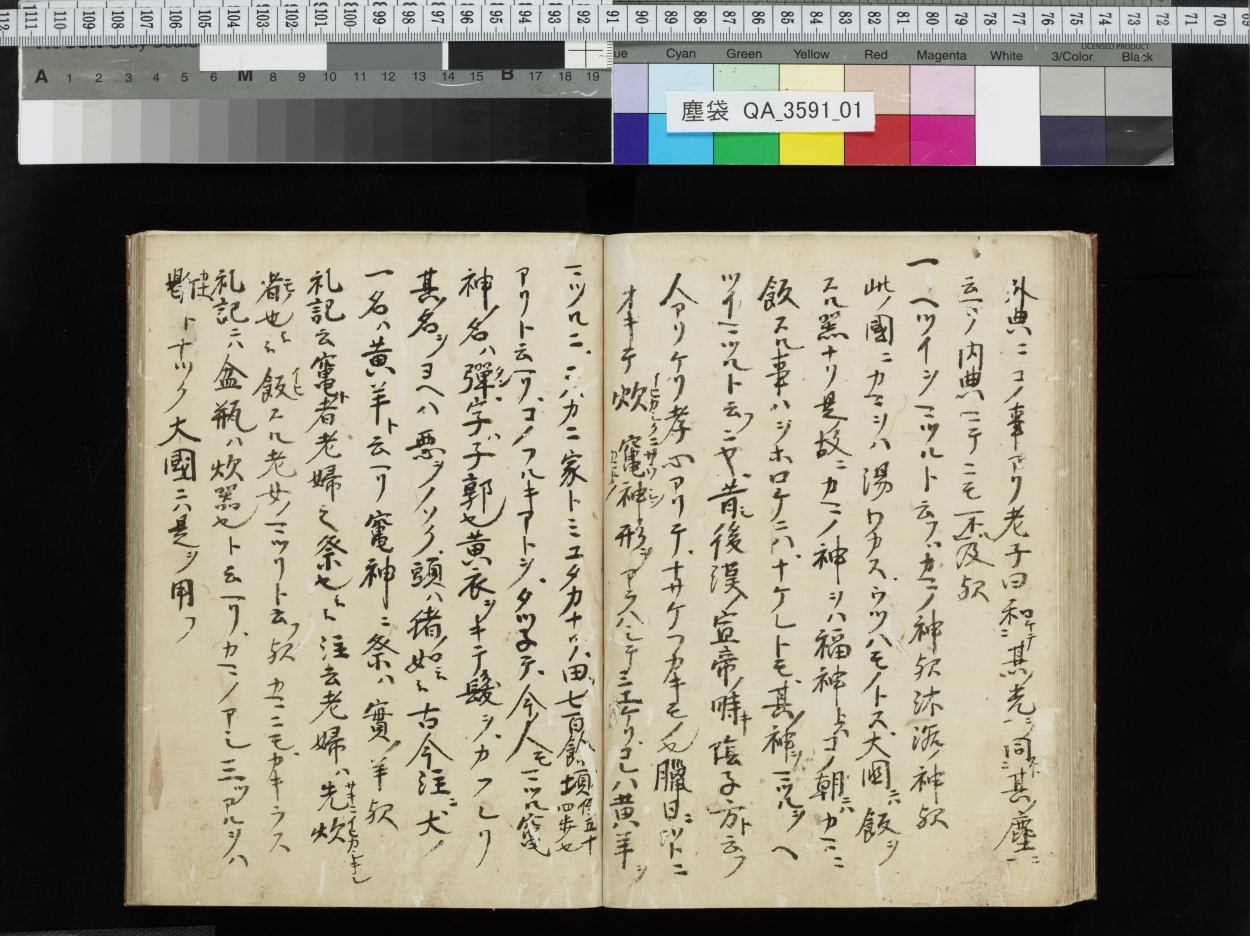 塵袋 QA_3591_01
Cyan Green Yellow Red Magenta White 3/Color Black
LICENSED PRODUCT
A 1 2 3 4 5 6 M 8 9 10 11 12 13 14 15 B 17 18 19
外典ニコノ事アリ老子曰和其光同其塵
云フ内典ニテニモ不及欤
一ヘツイシミツルト云フハカマノ神欤沐浴ノ神欤
此ノ國ニカマシハ湯ワカスウツハモノトス大國ニハ飯シ
スル器ナリ是故ニカマノ神シハ福神トスコノ朝ニハカマニ
飯スル事ハシホロケニハナケレトモ其神シミツルシヘ
ツイミツルト云フニヤ昔シ後漢ノ宣帝ノ時キ陰子方ト云フ
人アリケリ孝心アリテナサケフカキモノ也臘日ニツトニ
オキテ炊竃神形シアラハシテミエケリコレハ黄羊シ
ミツルニニハカニ家トミユタカナリ田七百餘頃
アリト云ヘリコノフルキアトシタツ子テ今ノ人モミツル竃
神ノ名ハ彈字ハ子郭也黄衣シキテ髪シカフレリ
其名シヨヘハ悪シノソク頭ハ猪ノ如シ古今注ニ犬ノ
一名ハ黄羊ト云ヘリ竃神ニ祭ハ實ノ羊欤
礼記云竃者老婦之祭也注云老婦ハ先炊
者也飯スル老女ノミツリト云フ欤カマニモカキラス
礼記ニハ盆瓶ハ炊器也ト云ヘリカマノアシ三ツアルシハ
トナツク大國ニハ是シ用フ